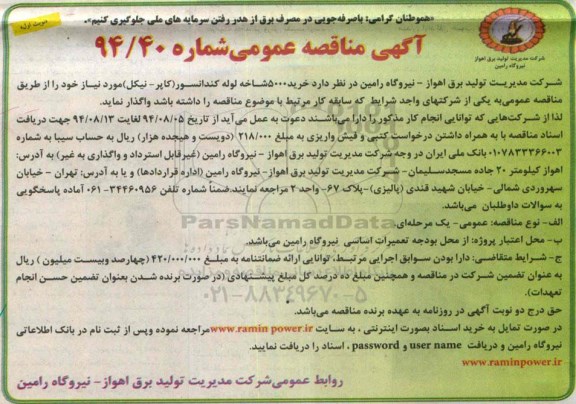 «هموطنان گرامی: باصرفه‌جویی در مصرف برق از هدر رفتن سرمایه های ملی جلوگیری کنیم».
نوبت اول
شرکت مدیریت تولید برق اهواز
نیروگاه رامین
آگهی مناقصه عمومی شماره ۹۴/۴۰
شرکت مدیریت تولید برق اهواز - نیروگاه رامین در نظر دارد خرید ۵۰۰۰ شاخه لوله کندانسور(کاپر- نیکل)مورد نیاز خود را از طریق
مناقصه عمومی‌به یکی از شرکتهای واجد شرایط که سابقه کار مرتبط با موضوع مناقصه را داشته باشد واگذار نماید.
لذا از شرکت‌هایی که توانایی انجام کار مذکور را دارا می‌باشند دعوت به عمل می آید از تاریخ ۹۴/۰۸/۰۵ لغایت ۹۴/۰۸/۱۳ جهت دریافت
اسناد مناقصه با به همراه داشتن درخواست کتبی و فیش واریزی به مبلغ ۲۱۸/۰۰۰ (دویست و هیجده هزار) ریال به حساب سیبا به شماره
۰۱۰۷۸۳۳۳۶۶۰۰۳ بانک ملی ایران در وجه شرکت مدیریت تولید برق اهواز - نیروگاه رامین (غیرقابل استرداد و واگذاری به غیر) به آدرس:
اهواز کیلومتر ۲۰ جاده مسجدسلیمان- شرکت مدیریت تولید برق اهواز- نیروگاه رامین (اداره قراردادها) و یا به آدرس: تهران - خیابان
سهروردی شمالی- خیابان شهید قندی (پالیزی)-پلاک ۶۷- واحد ۲ مراجعه نمایند.ضمناً شماره تلفن ۳۴۴۶۰۹۵۶-۰۶۱ آماده پاسخگویی
به سوالات داوطلبان می‌باشد.
الف- نوع مناقصه: عمومی- یک مرحله‌ای.
ب- محل اعتبار پروژه: از محل بودجه تعمیرات اساسی نیروگاه رامین می‌باشد.
ج- شرایط متقاضی: دارا بودن سوابق اجرایی مرتبط، توانایی ارائه ضمانتنامه به مبلغ ۴۲۰/۰۰۰/۰۰۰ (چهارصد وبیست میلیون ) ریال
به عنوان تضمین شرکت در مناقصه و همچنین مبلغ ده درصد کل مبلغ پیشنهادی (در صورت برنده شدن بعنوان تضمین حسن انجام
تعهدات).
حق درج دو نوبت آگهی در روزنامه به عهده برنده مناقصه می‌باشد.
در صورت تمایل به خرید اسناد بصورت اینترنتی ، به سایت www.ramin power.ir مراجعه نموده وپس از ثبت نام در بانک اطلاعاتی
نیروگاه رامین و دریافت user name و password ، اسناد را دریافت نمایید.
www.raminpower.ir
روابط عمومی شرکت مدیریت تولید برق اهواز- نیروگاه رامین
ParsNamadData
۰۲۱-۸۸۳۴۹۶۷۰-۵